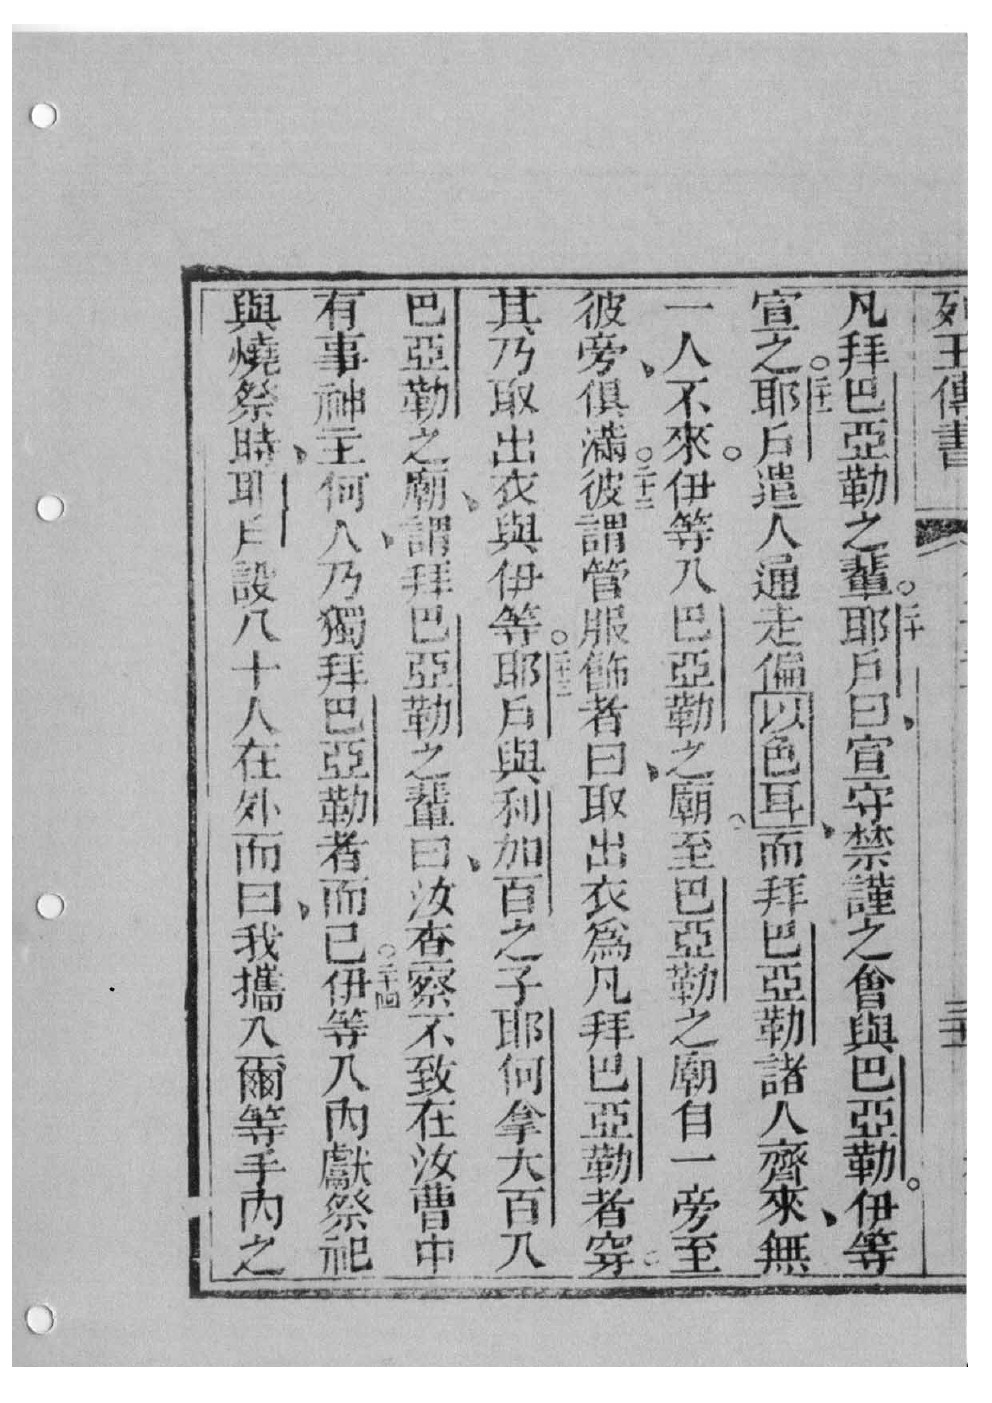 列王傳書
凡拜巴亞勒之輩。二十耶戶曰、宣守禁謹之會與巴亞勒。伊等
宣之。二十一耶戶遣人通走徧以色耳、而拜巴亞勒諸人齊來、無
一人不來。伊等入巴亞勒之廟至巴亞勒之廟自一旁至
彼旁、俱滿。二十二彼謂管服飾者曰、取出衣爲凡拜巴亞勒者穿
其、乃取出衣與伊等。二十三耶戶與利加百之子耶何拿大百入
巴亞勒之廟、謂拜巴亞勒之輩曰、汝查察不致在汝曹中
有事神主何人、乃獨拜巴亞勒者而已。二十四伊等入內獻祭祀
與燒祭時、耶戶設八十人在外而曰、我攜入爾等手內之